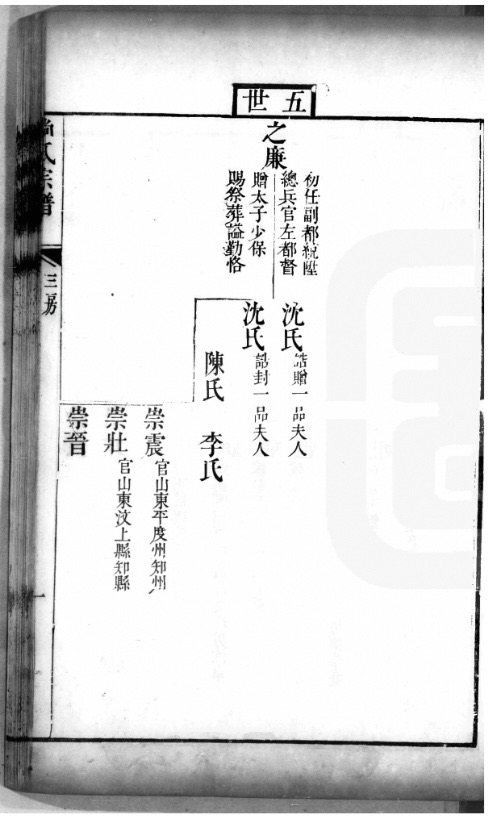 五世
之廉
初任副都統陞
總兵官左都督
贈太子少保
賜祭葬諡勤恪
沈氏
誥贈一品夫人
沈氏
誥封一品夫人
陳氏 李氏
崇震
官山東平度州知州
崇壯
官山東汶上縣知縣
崇晉
尚氏宗譜
三房
一